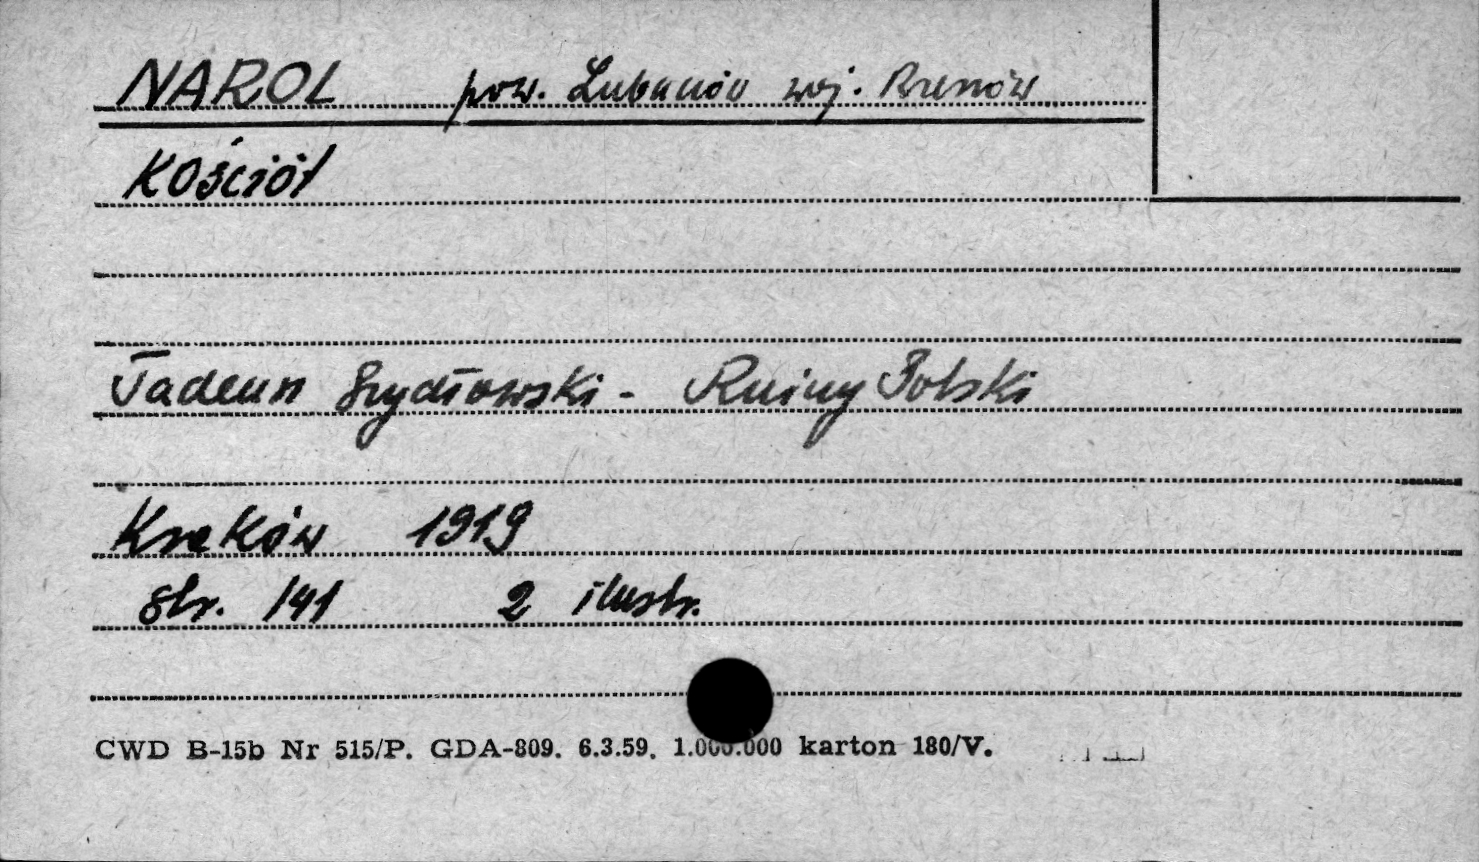 NAROL pow. Lubaczów woj. Rzeszów
Kościół
Tadeusz Szydłowski - Ruiny Polski
Kraków 1919
str. 141 2 ilustr.
CWD B-15b Nr 515/P. GDA-809. 6.3.59. 1.000.000 karton 180/V.